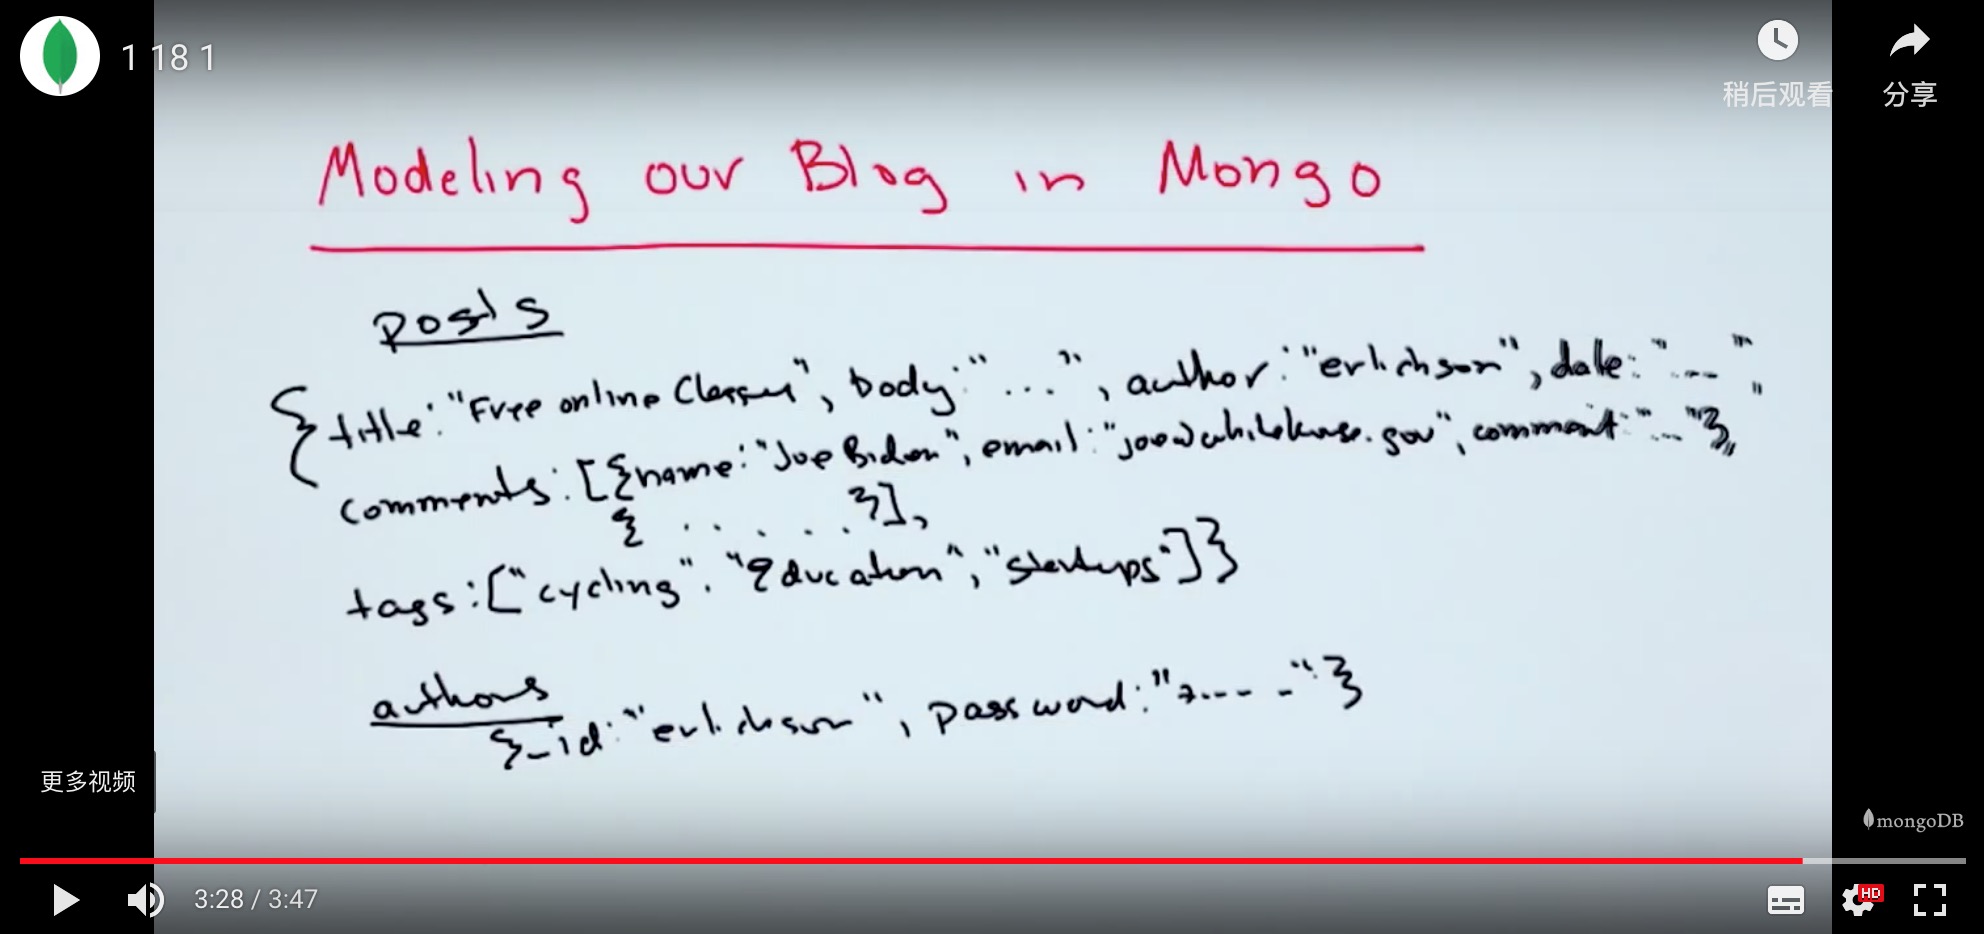 1 18 1
稍后观看
分享
Modeling our Blog in Mongo
posts
{title:"Free online Classes", body:"...", author:"erlichson", date:"...",
comments:[{name:"Joe Biden", email:"joe@whitehouse.gov", comment:"..."},
{ ...... }],
tags:["cycling", "education", "startups"]}
authors
{_id:"erlichson", password:"
更多视频
mongoDB
3:28 / 3:47
HD